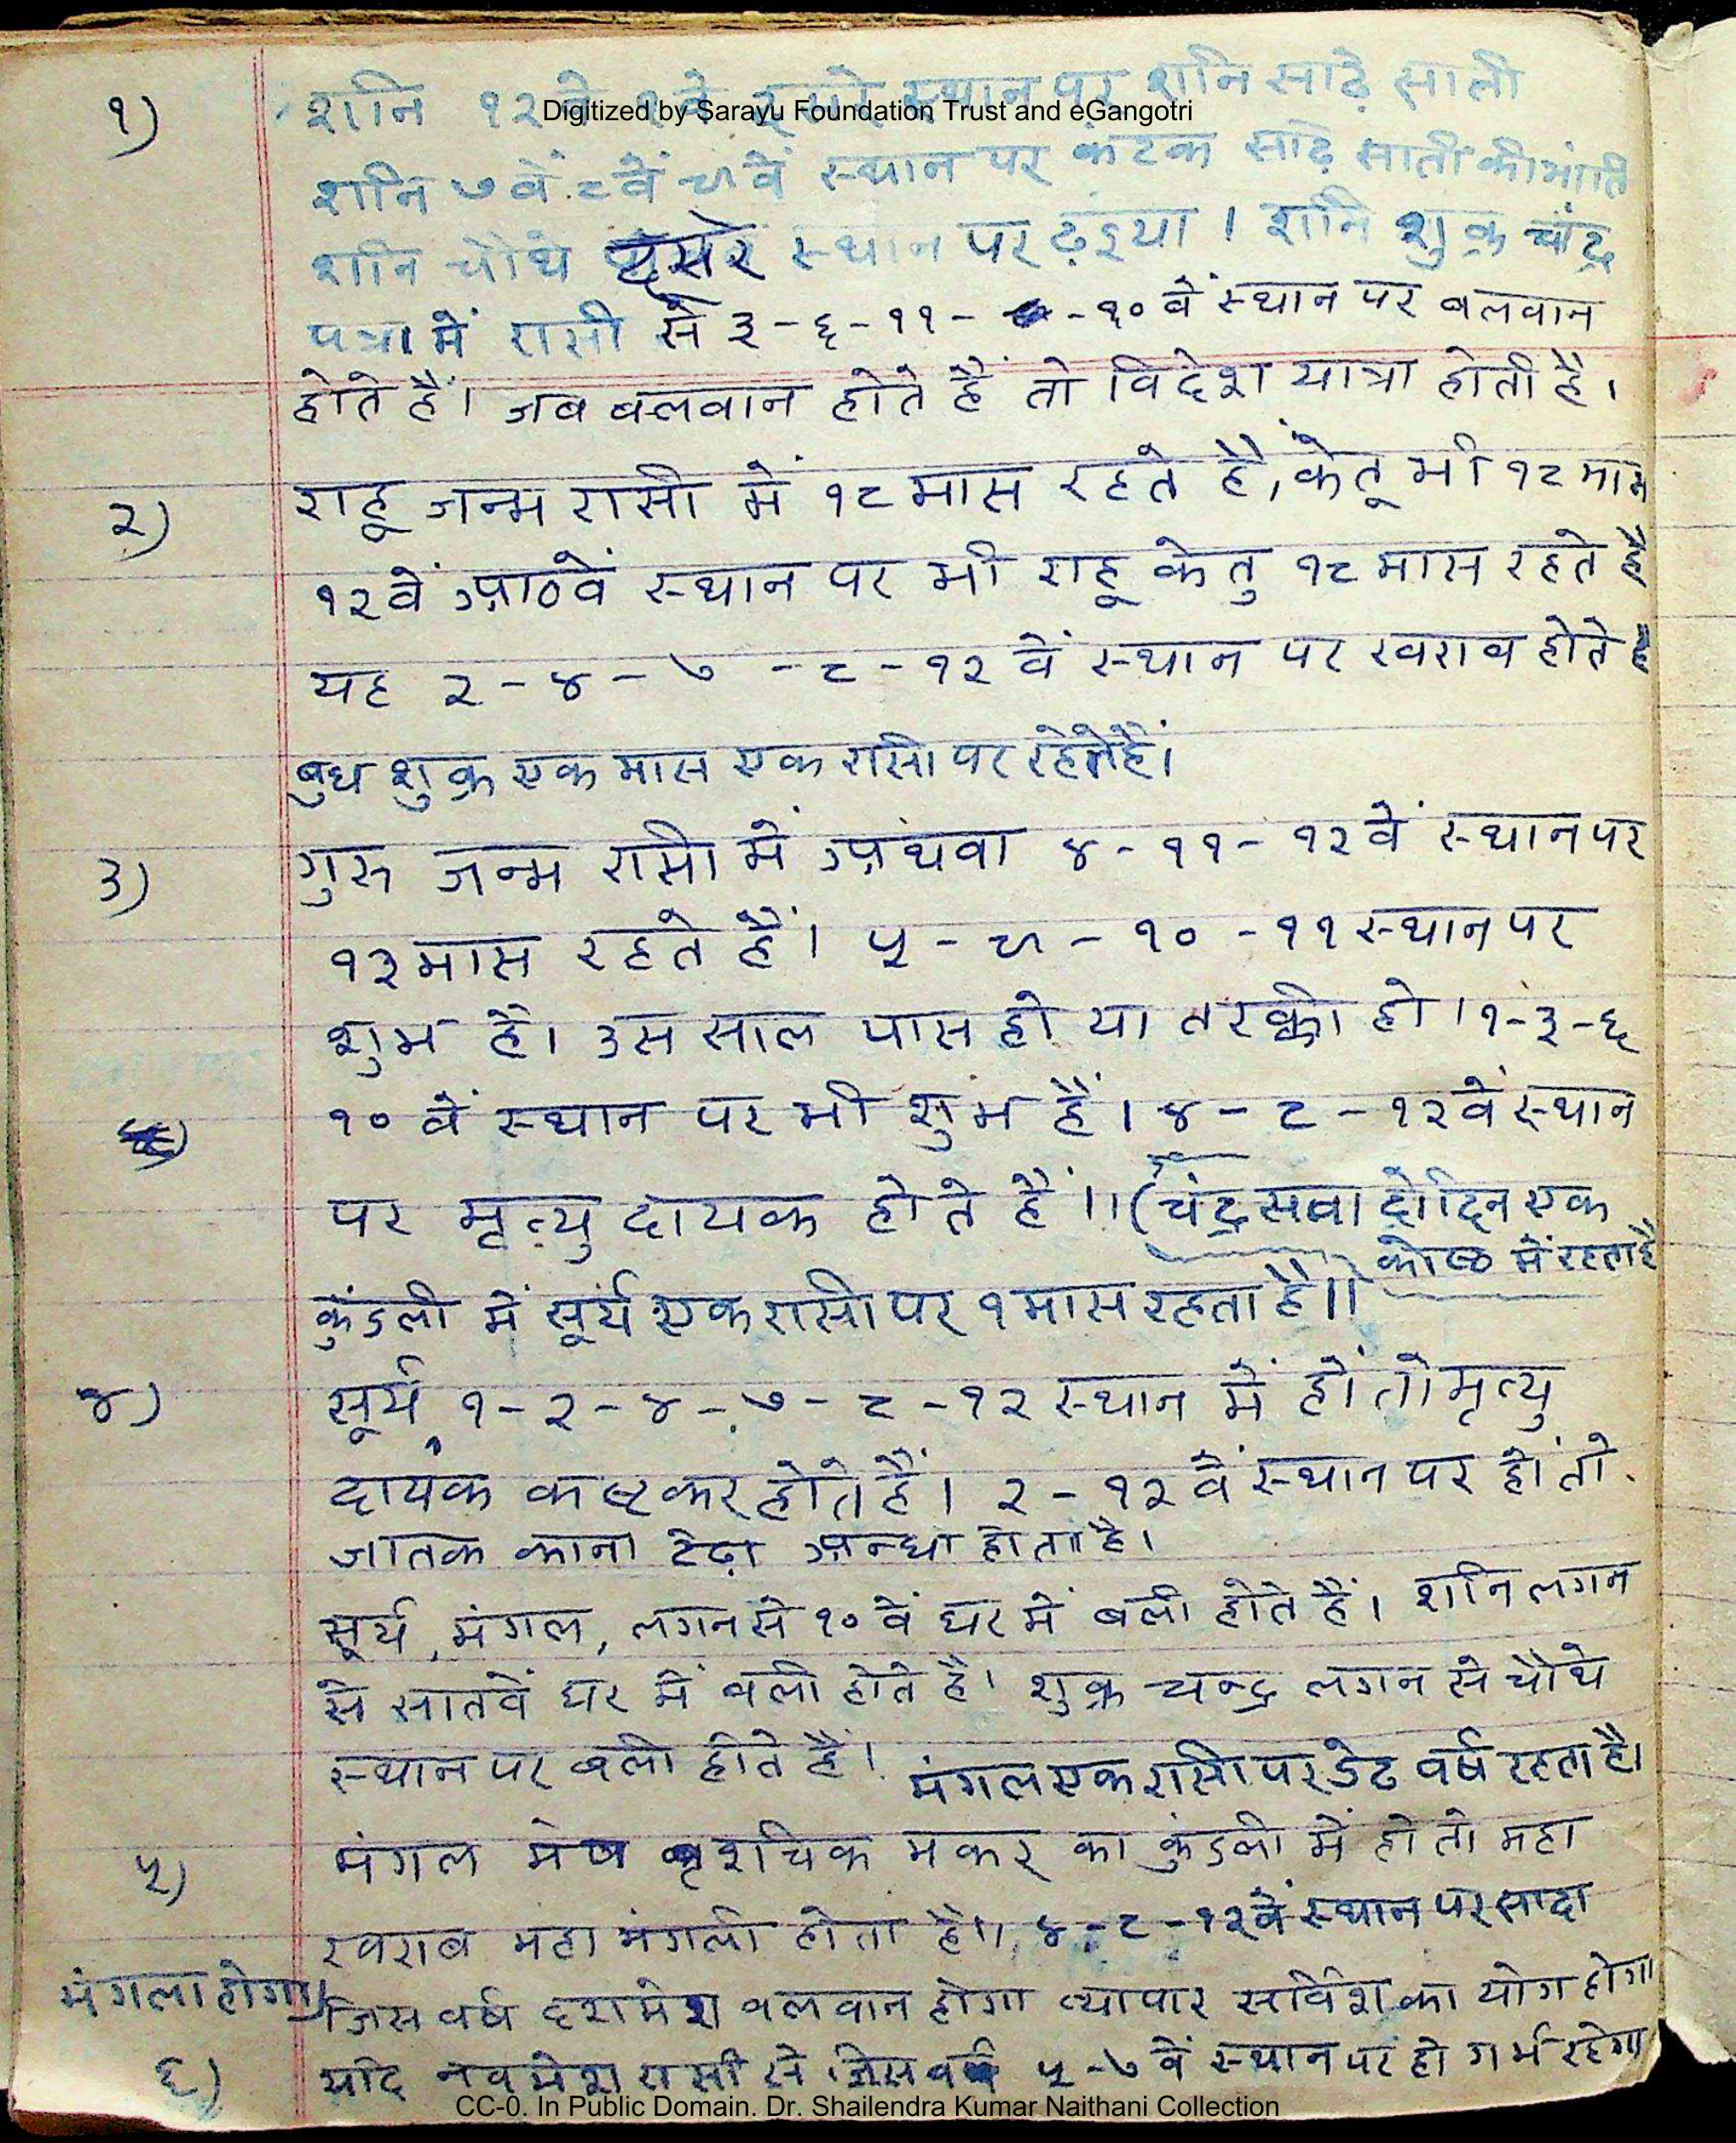 १) शनि १२वे १वे दूसरे स्थान पर शनि साढ़े साती
Digitized by Sarayu Foundation Trust and eGangotri
शनि ७वें ८वें ९वें स्थान पर कंटक साढ़े साती की भांति
शनि चौथे दूसरे स्थान पर ढ़इया । शनि शुक्र चंद्र
पत्रा में रासी से ३-६-११- -१०वें स्थान पर बलवान
होते हैं। जब बलवान होते हैं तो विदेश यात्रा होती है।
२) राहू जन्म रासी में १८ मास रहते हैं, केतू भी १८ मास
१२वें आठवें स्थान पर भी राहू केतु १८ मास रहते हैं
यह २-४-७-८-१२ वें स्थान पर खराब होते हैं
बुध शुक्र एक मास एक रासी पर रहते हैं।
३) गुरु जन्म रासी में अथवा ४-११-१२वें स्थान पर
१३ मास रहते हैं। ५-९-१०-११ स्थान पर
शुभ है। उस साल पास हो या तरक्की हो। १-३-६
१० वें स्थान पर भी शुभ हैं। ४-८-१२वें स्थान
पर मृत्यु दायक होते हैं।। (चंद्र सवा दो दिन एक
कोष्ठ में रहता है
कुंडली में सूर्य एक रासी पर १ मास रहता है।।
४) सूर्य १-२-४-७-८-१२ स्थान में हों तो मृत्यु
दायक कष्टकर होते हैं। २-१२वें स्थान पर हों तो
जातक काना टेढ़ा अन्धा होता है।
सूर्य, मंगल, लगन से १०वें घर में बली होते हैं। शनि लगन
से सातवें घर में बली होते है। शुक्र चन्द्र लगन से चौथे
स्थान पर बली होते हैं। मंगल एक रासी पर डेढ वर्ष रहता है।
५) मंगल मेष बृशचिक मकर का कुंडली में हो तो महा
खराब महा मंगली होता है।। ४-८-१२वें स्थान पर सादा
मंगला होगा। जिस वर्ष दशमेश बलवान होगा व्यापार सर्विश का योग होगा
६) यदि नवमेश रासी से जिस वर्ष ५-७ वें स्थान पर हो गर्भ रहेगा
CC-0. In Public Domain. Dr. Shailendra Kumar Naithani Collection